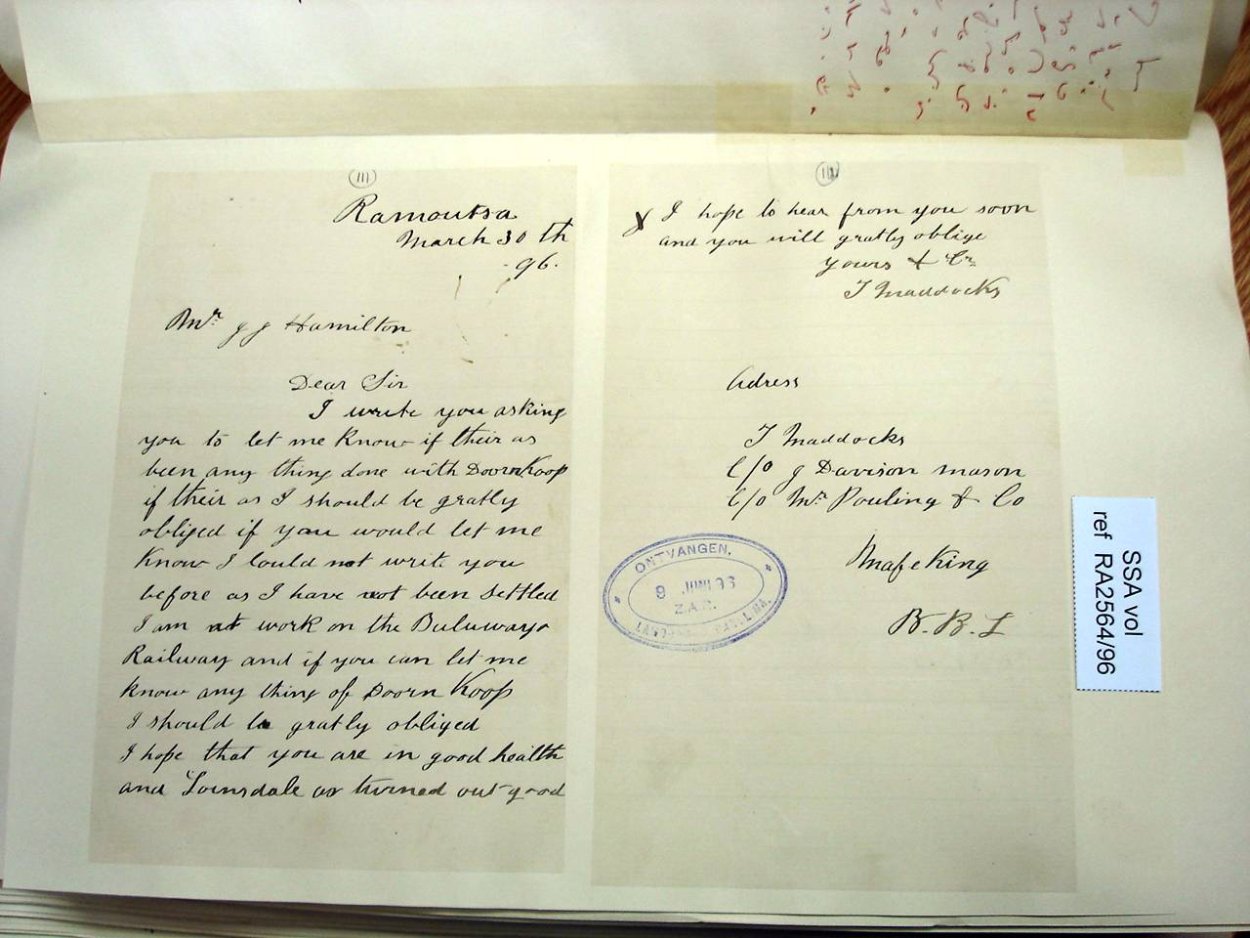 111
Ramoutsa
March 30th
-96.
Mr J J Hamilton
Dear Sir
I write you asking
you to let me know if their as
been any thing done with Doornkoop
if their as I should be gratly
obliged if you would let me
know I could not write you
before as I have not been settled
I am at work on the Buluwayo
Railway and if you can let me
know any thing of Doorn Koop
I should be gratly obliged
I hope that you are in good health
and Lonsdale as turned out good
I hope to hear from you soon
and you will gratly oblige
yours & Cr.
T Maddocks
Adress
T Maddocks
C/o J Davison mason
C/o Mr Pouling & Co
Mafeking
B.B.L
ONTVANGEN.
9 JUNI 96
Z.A.R.
SSA vol
ref RA2564/96